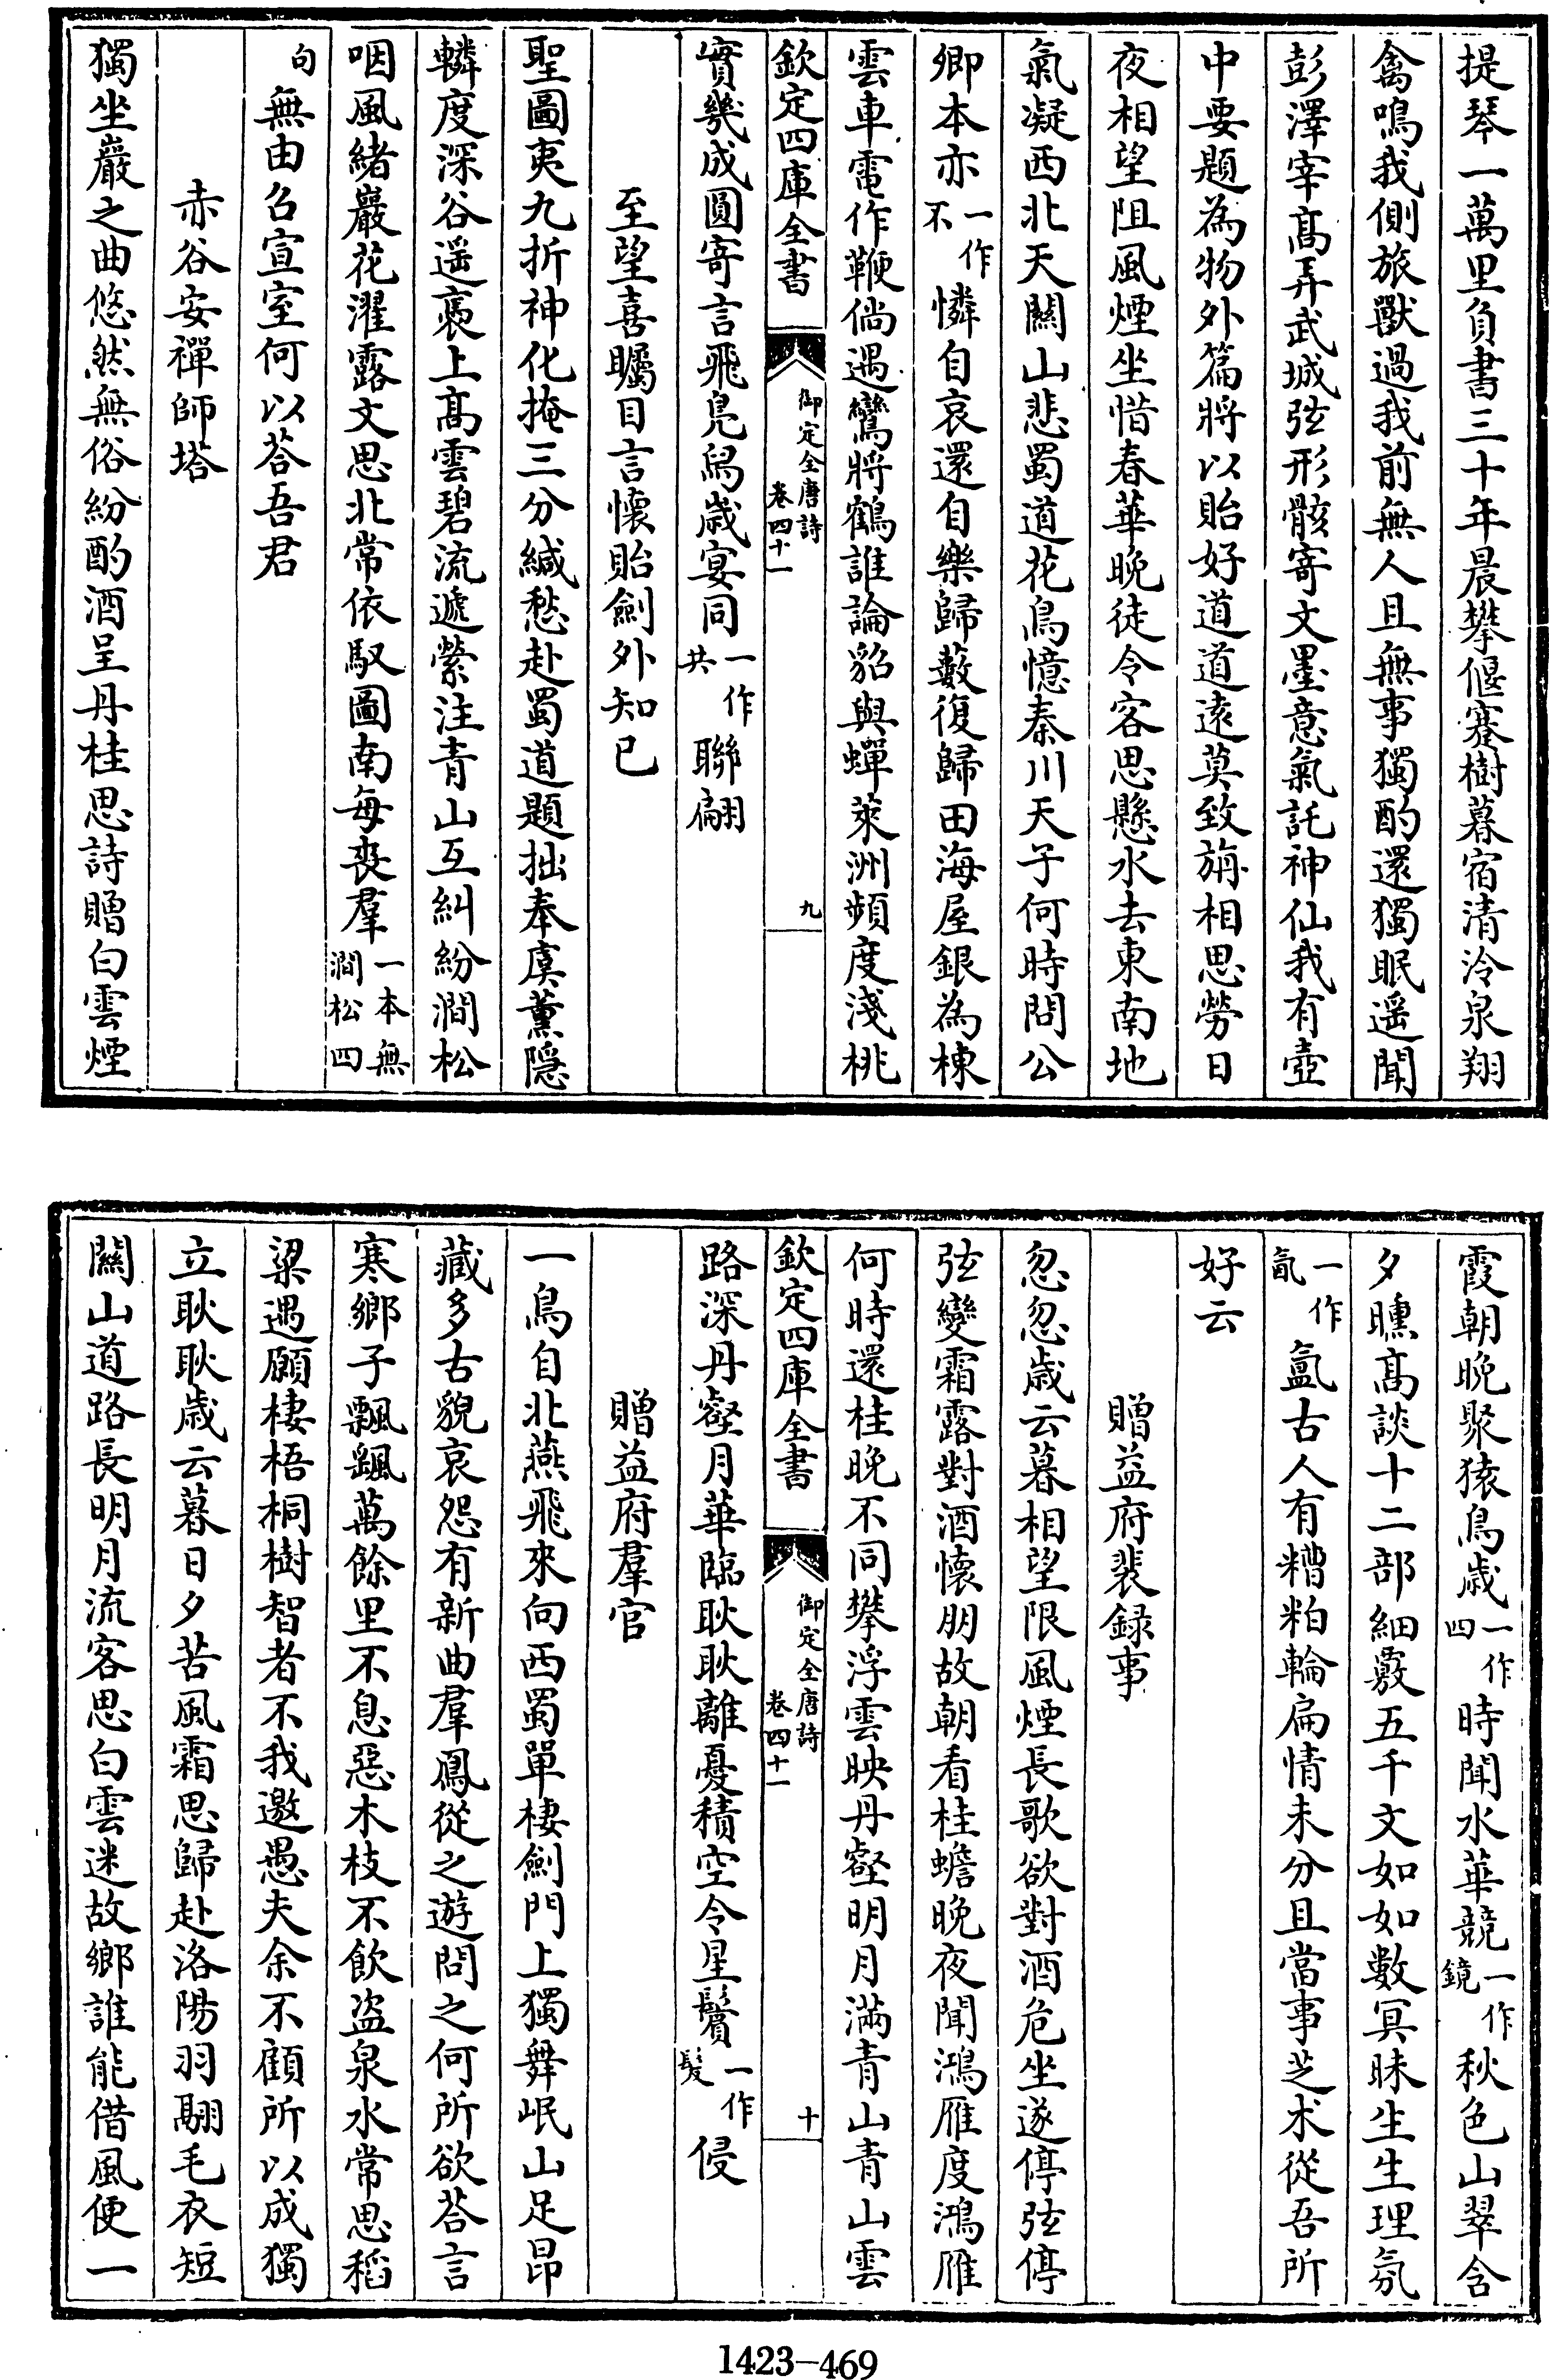 提琴一萬里負書三十年晨攀偃蹇樹暮宿清泠泉翔
禽鳴我側旅獸過我前無人且無事獨酌還獨眠遥聞
彭澤宰髙弄武城弦形骸寄文墨意氣託神仙我有壺
中要題為物外篇將以貽好道道逺莫致旃相思勞日
夜相望阻風煙坐惜春華晚徒令客思懸水去東南地
氣凝西北天關山悲蜀道花鳥憶秦川天子何時問公
卿本亦一作不憐自哀還自樂歸藪復歸田海屋銀為棟
雲車電作鞭倘遇鸞將鶴誰論貂與蟬萊洲頻度淺桃
欽定四庫全書 御定全唐詩 卷四十一 九
實幾成圓寄言飛鳧舄歲宴同一作共聯翩
至望喜矚目言懷貽劍外知已
聖圖夷九折神化掩三分緘愁赴蜀道題拙奉虞薰隱
轔度深谷遥裊上髙雲碧流遞縈注青山互糾紛澗松
咽風緒巖花濯露文思北常依馭圖南每喪羣一本無澗松四
句無由召宣室何以荅吾君
赤谷安禪師塔
獨坐巖之曲悠然無俗紛酌酒呈丹桂思詩贈白雲煙
霞朝晚聚猿鳥歲一作四時聞水華競一作鏡秋色山翠含
夕曛髙談十二部細覈五千文如如數冥昧生生理氛
一作氤氲古人有糟粕輪扁情未分且當事芝术從吾所
好云
贈益府裴録事
忽忽歲云暮相望限風煙長歌欲對酒危坐遂停弦停
弦變霜露對酒懷朋故朝看桂蟾晚夜聞鴻雁度鴻雁
何時還桂晚不同攀浮雲映丹壑明月滿青山青山雲
欽定四庫全書 御定全唐詩 卷四十一 十
路深丹壑月華臨耿耿離憂積空令星鬢一作髮侵
贈益府羣官
一鳥自北燕飛來向西蜀單棲劍門上獨舞岷山足昂
藏多古貌哀怨有新曲羣鳳從之遊問之何所欲荅言
寒鄉子飄颻萬餘里不息惡木枝不飲盜泉水常思稻
粱遇願棲梧桐樹智者不我邀愚夫余不顧所以成獨
立耿耿歲云暮日夕苦風霜思歸赴洛陽羽翮毛衣短
關山道路長明月流客思白雲迷故鄉誰能借風便一
1423-469